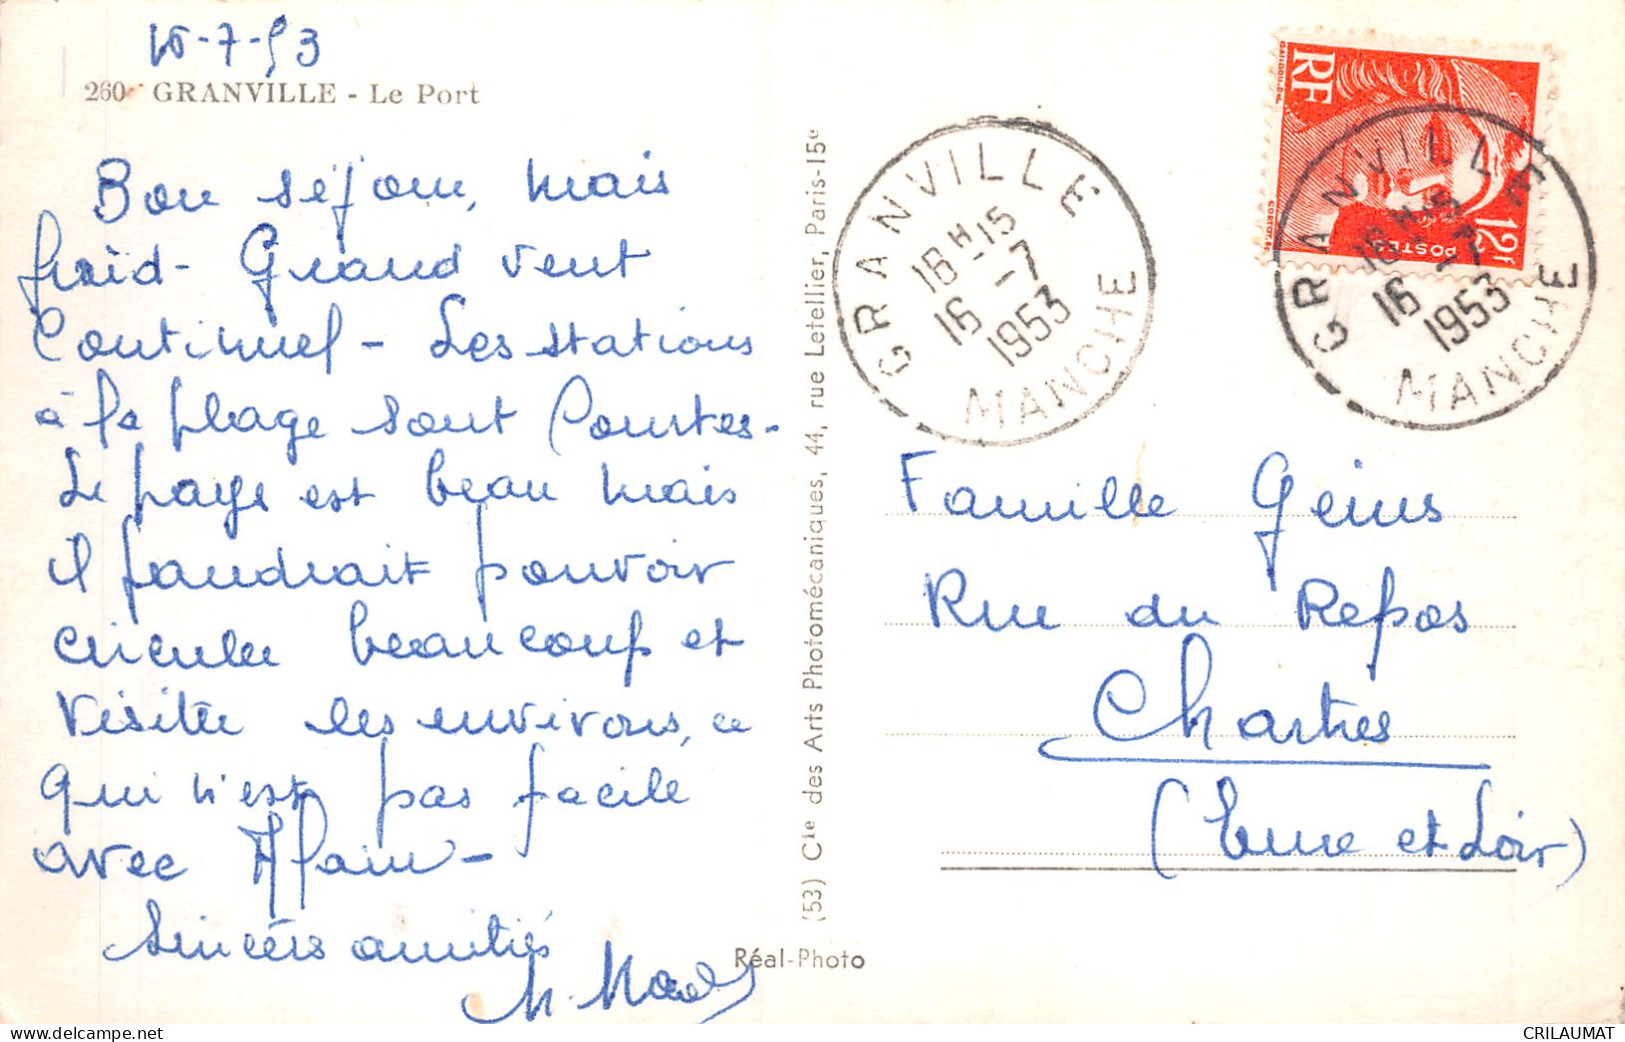 15-7-53
260 GRANVILLE - Le Port
Bon séjour, mais
froid - Grand vent
Continuel - Les stations
à la plage sont Courtes -
Le pays est beau mais
il faudrait pouvoir
circuler beaucoup et
visiter les environs, ce
qui n'est pas facile
avec Alain -
Sincères amitiés
(53) Cie des Arts Photomécaniques, 44, rue Letellier, Paris-15e
Réal-Photo
GRANVILLE
18H15
16 -7
1953
MANCHE
RF
12F
POSTES
GRANVILLE
18H15
16 -7
1953
MANCHE
Famille Geins
Rue du Repos
Chartres
(Eure et Loir)
www.delcampe.net
CRILAUMAT